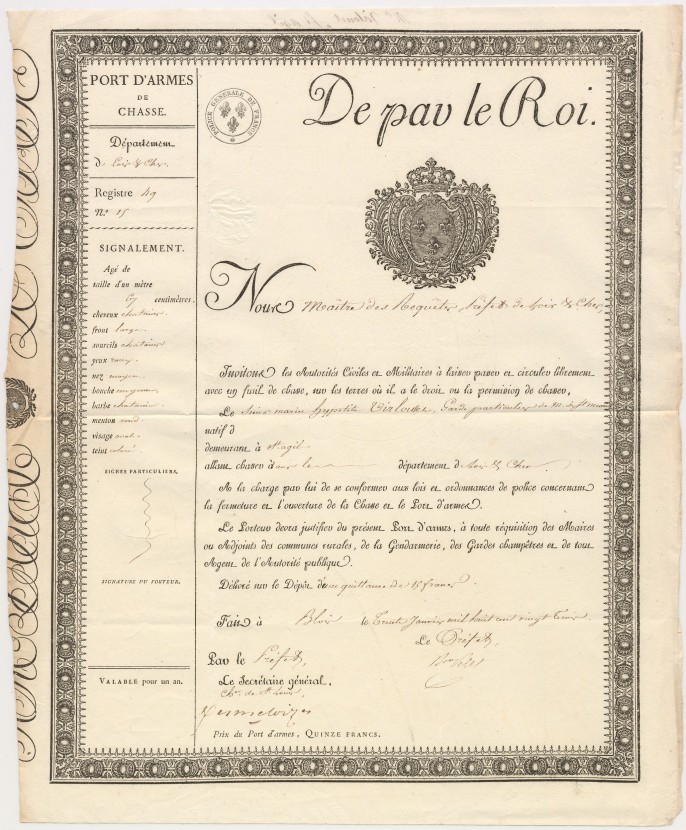 PORT D'ARMES
DE
CHASSE.
Département
d Loir & Cher
Registre 49
N.º 15
SIGNALEMENT.
Agé de
taille d'un mètre
67 centimètres.
cheveux chatains
front large
sourcils chatains
yeux
nez moyen
bouche moyenne
barbe chataine
menton rond
visage oval
teint coloré
SIGNES PARTICULIERS.
SIGNATURE DU PORTEUR.
VALABLE pour un an.
POLICE GENERALE DE FRANCE
De par le Roi.
Nous Maître des Requêtes, Préfet de Loir & Cher,
Invitons les Autorités Civiles et Militaires à laisser passer et circuler librement
avec un fusil de chasse, sur les terres où il a le droit ou la permission de chasser,
Le Sieur marin hypolite Garde particulier de M. de St
natif d
demeurant à St agil
allant chasser à département de Loir & Cher
A la charge par lui de se conformer aux lois et ordonnances de police concernant
la fermeture et l'ouverture de la Chasse et le Port d'armes.
Le Porteur devra justifier du présent Port d'armes, à toute réquisition des Maires
ou Adjoints des communes rurales, de la Gendarmerie, des Gardes champêtres et de tout
Agent de l'Autorité publique.
Délivré sur le Dépôt d'une quittance de 15 francs.
Fait à Blois le trente Janvier mil huit cent vingt trois.
Le Préfet,
Par le Préfet,
Le Secrétaire général,
Ch.er de St Louis
Prix du Port d'armes, QUINZE FRANCS.